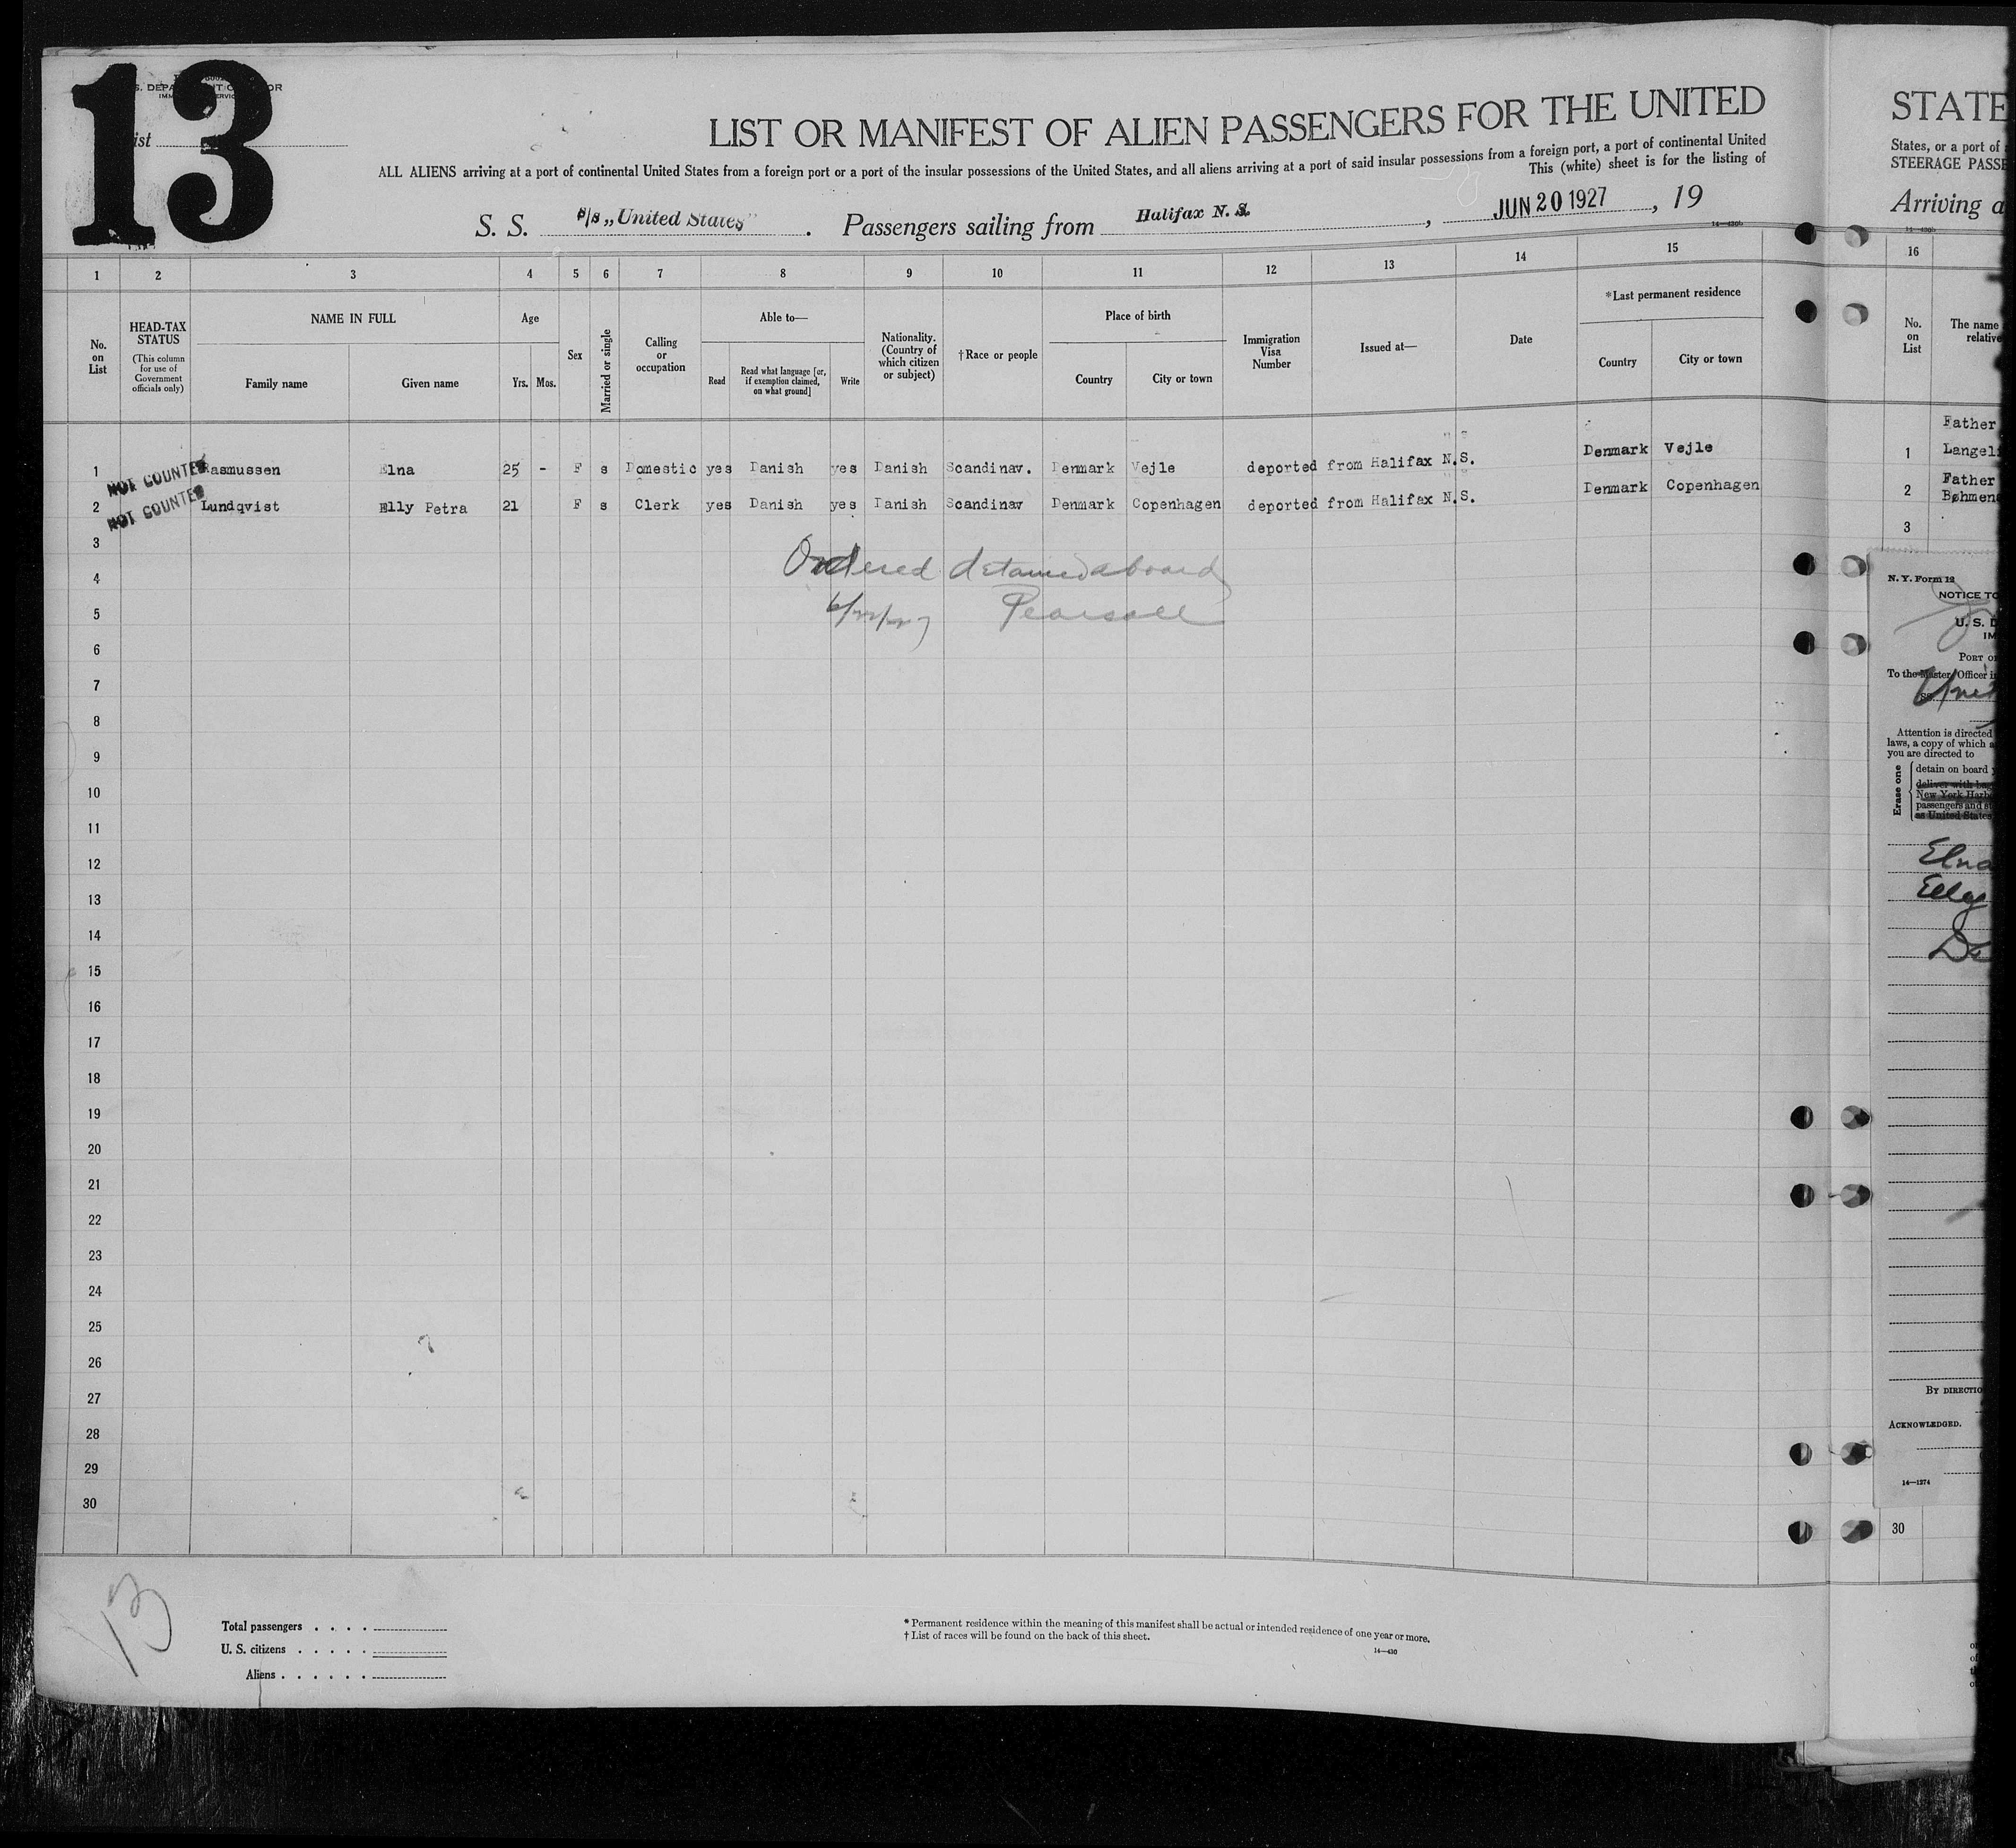 13
List
LIST OR MANIFEST OF ALIEN PASSENGERS FOR THE UNITED
ALL ALIENS arriving at a port of continental United States from a foreign port or a port of the insular possessions of the United States, and all aliens arriving at a port of said insular possessions from a foreign port, a port of continental United
This (white) sheet is for the listing of
S. S. s/s „United States" . Passengers sailing from Halifax N. S. , JUN 20 1927 , 19
14—430b
1 2 3 4 5 6 7 8 9 10 11 12 13 14 15
No. on List
HEAD-TAX STATUS
(This column for use of Government officials only)
NAME IN FULL
Family name Given name
Age
Yrs. Mos.
Sex
Married or single
Calling or occupation
Able to—
Read
Read what language [or, if exemption claimed, on what ground]
Write
Nationality. (Country of which citizen or subject)
†Race or people
Place of birth
Country City or town
Immigration Visa Number
Issued at—
Date
*Last permanent residence
Country City or town
1 NOT COUNTED Rasmussen Elna 25 - F s Domestic yes Danish yes Danish Scandinav. Denmark Vejle deported from Halifax N.S. Denmark Vejle
2 NOT COUNTED Lundqvist Elly Petra 21 F s Clerk yes Danish yes Danish Scandinav Denmark Copenhagen deported from Halifax N.S. Denmark Copenhagen
3
Ordered detained aboard
4
6/22/27 Pearsall
5
6
7
8
9
10
11
12
13
14
15
16
17
18
19
20
21
22
23
24
25
26
27
28
29
30
13
Total passengers . . . .
U. S. citizens . . . . .
Aliens . . . . . .
* Permanent residence within the meaning of this manifest shall be actual or intended residence of one year or more.
† List of races will be found on the back of this sheet.
14—430
STATE
States, or a port of
STEERAGE PASSE
Arriving a
14—430b
16
No. on List
The name
relative
Father
1 Langel
Father
2 Bøhmen
3
N. Y. Form 12
NOTICE TO
U. S. D
IM
PORT O
To the Master/Officer i
SS. Unit
Attention is directed
laws, a copy of which a
you are directed to
Erase one
detain on board
deliver with bag
New York Harbo
passengers and st
as United States
Elna
Elly
De
BY DIRECTIO
ACKNOWLEDGED.
14—1274
30